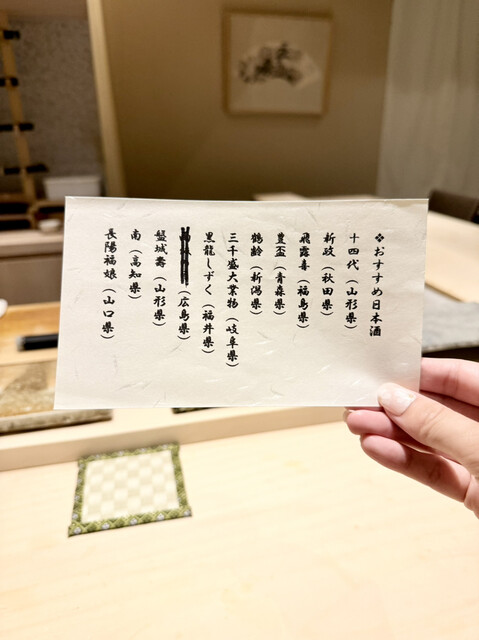 ❖おすすめ日本酒
十四代（山形県）
新政（秋田県）
飛露喜（福島県）
豊盃（青森県）
鶴齢（新潟県）
三千盛大業物（岐阜県）
黒龍しずく（福井県）
（広島県）
磐城壽（山形県）
南（高知県）
長陽福娘（山口県）